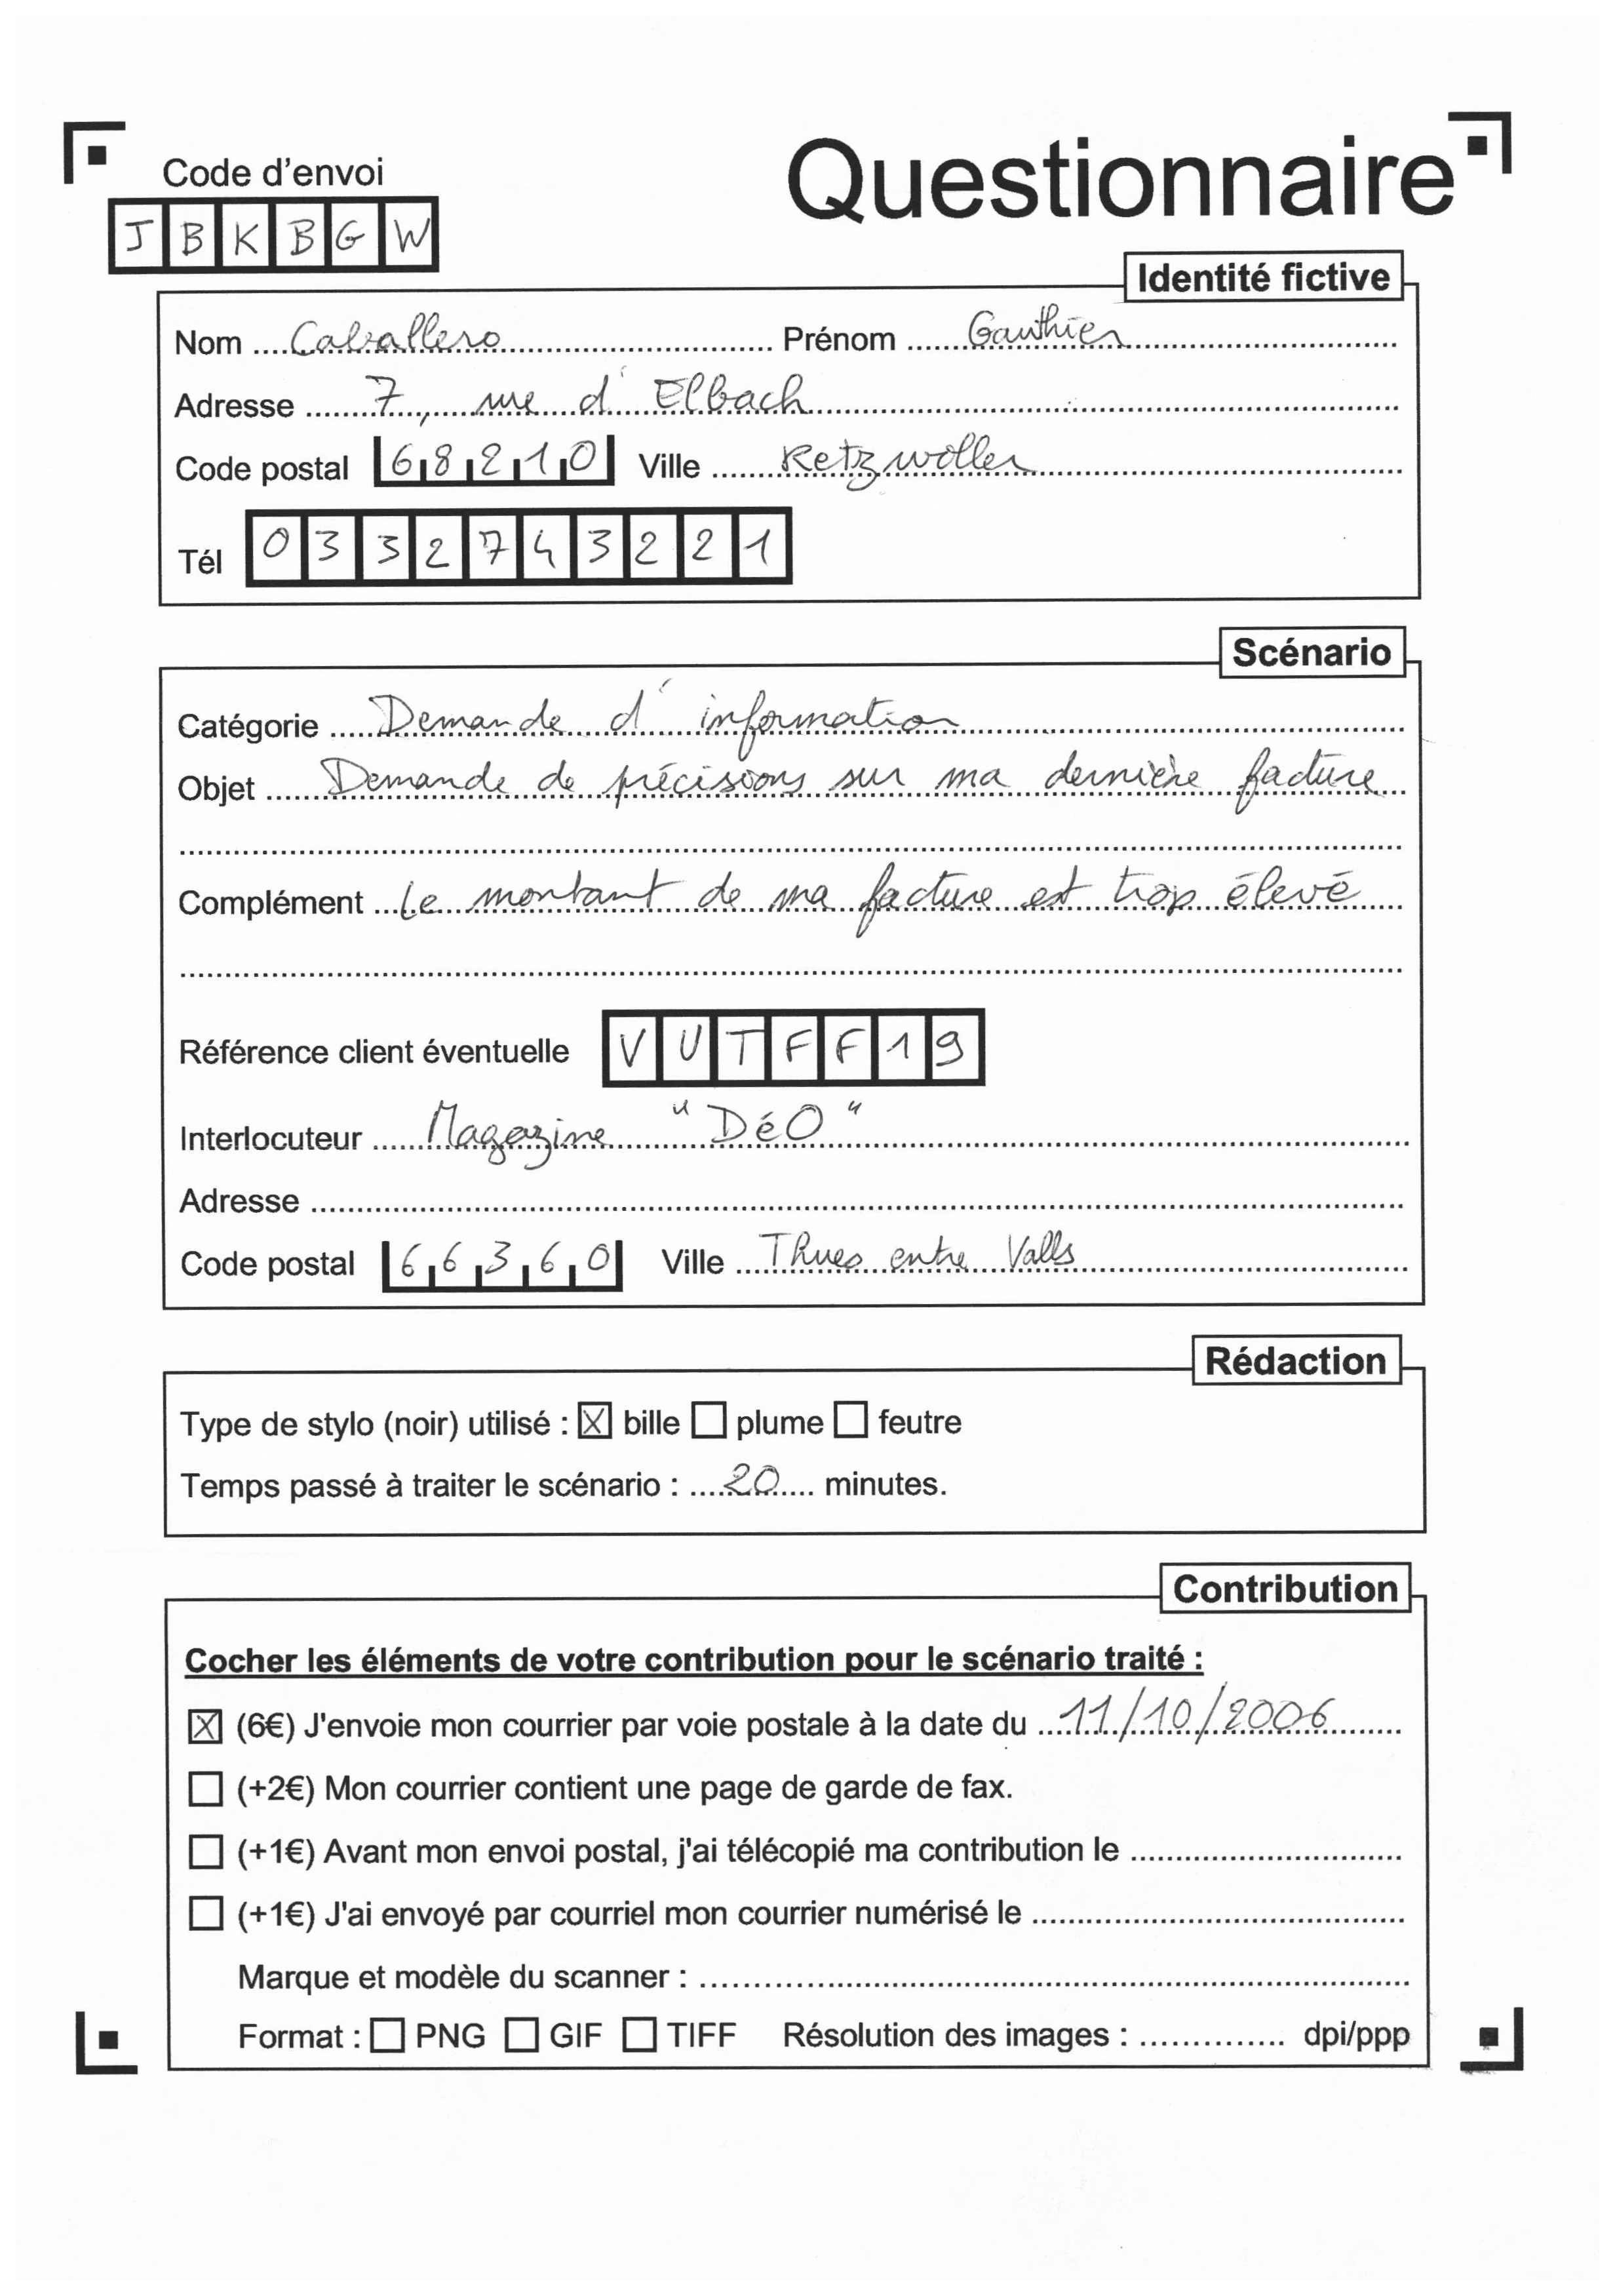 Questionnaire
Code d'envoi
J B K B G W
Identité fictive
Nom Caballero Prénom Gauthier
Adresse 7, rue d'Elbach
Code postal 68210 Ville Retzwiller
Tél 0332743221
Scénario
Catégorie Demande d'information
Objet Demande de précisions sur ma dernière facture
Complément Le montant de ma facture est trop élevé
Référence client éventuelle VUTFF19
Interlocuteur Magazine "DéO"
Adresse
Code postal 66360 Ville Thues entre Valls
Rédaction
Type de stylo (noir) utilisé : ☒ bille ☐ plume ☐ feutre
Temps passé à traiter le scénario : 20 minutes.
Contribution
Cocher les éléments de votre contribution pour le scénario traité :
☒ (6€) J'envoie mon courrier par voie postale à la date du 11/10/2006
☐ (+2€) Mon courrier contient une page de garde de fax.
☐ (+1€) Avant mon envoi postal, j'ai télécopié ma contribution le
☐ (+1€) J'ai envoyé par courriel mon courrier numérisé le
Marque et modèle du scanner :
Format : ☐ PNG ☐ GIF ☐ TIFF Résolution des images : dpi/ppp